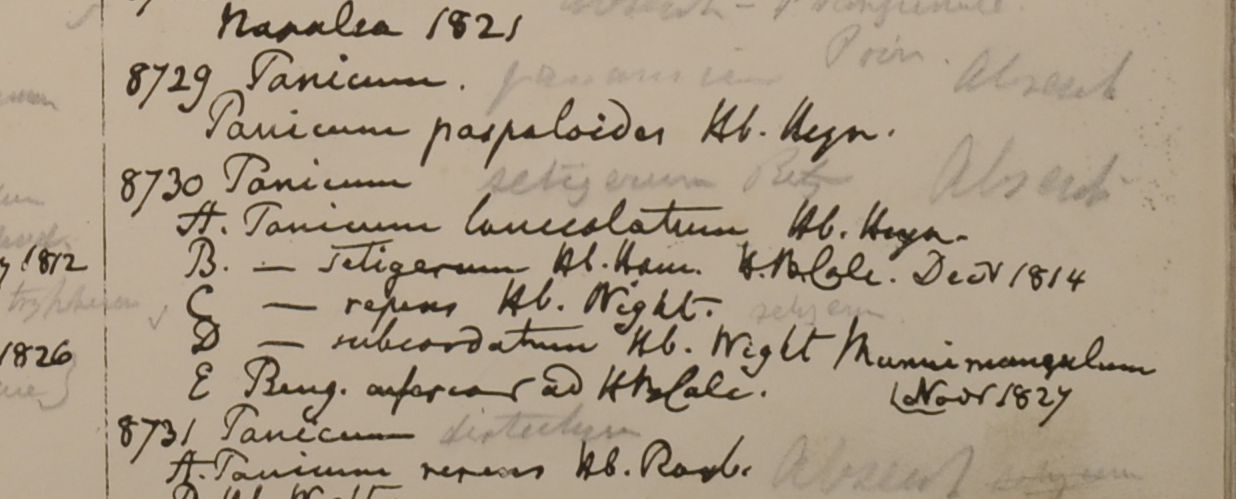 Napalea 1821
8729 Panicum. Absent
Panicum paspaloides Hb. Heyn.
8730 Panicum setigerum Retz Absent
A. Panicum lanceolatum Hb. Heyn.
1812 B. — setigerum Hb. Ham. H.B.Calc. Decr 1814
C — repens Hb. Wight.
1826 D — subcordatum Hb. Wight Munnimangulum
E Beng. inferior ad H.B.Calc. Novr 1827
8731 Panicum distachyum
A. Panicum repens Hb. Roxb. Absent